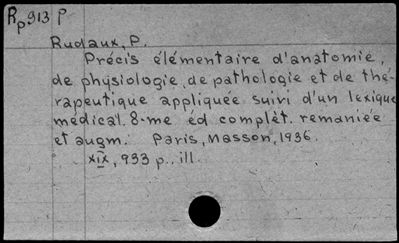 Rp913 P
Rudaux, P.
Précis élémentaire d'anatomie,
de physiologie, de pathologie et de thé-
rapeutique appliquée suivi d'un lexique
médical. 8-me éd complèt. remaniée
et augm. Paris, Masson, 1936.
XIX, 933 p., ill.